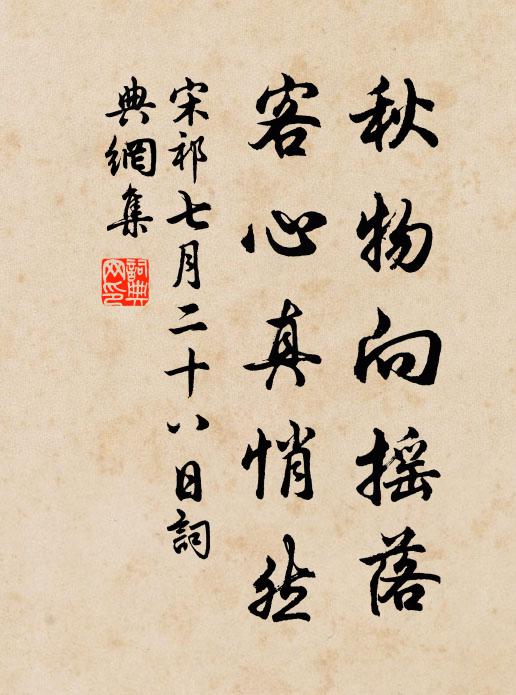 秋物向摇落
客心真悄然
宋祁七月二十八日詞
典網集
詞典網印